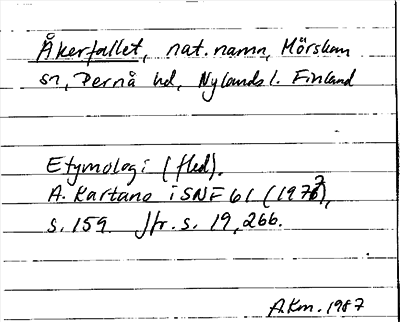 Åkerfallet, nat.namn, Mörskom
sn, Pernå hd, Nylands l. Finland
Etymologi (fled).
A. Kartano i SNF 61 (1978),
s. 159. Jfr. s. 19, 266.
A.Km. 1987